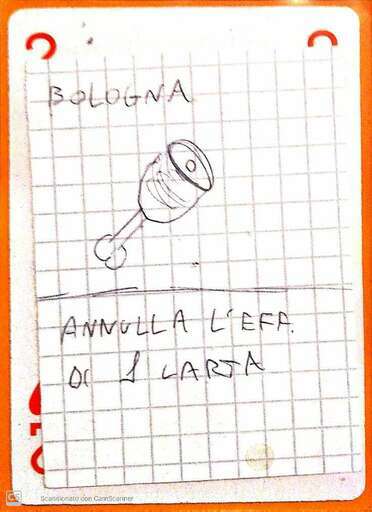 BOLOGNA
ANNULLA L'EFF.
DI 1 CARTA
CS Scansionato con CamScanner